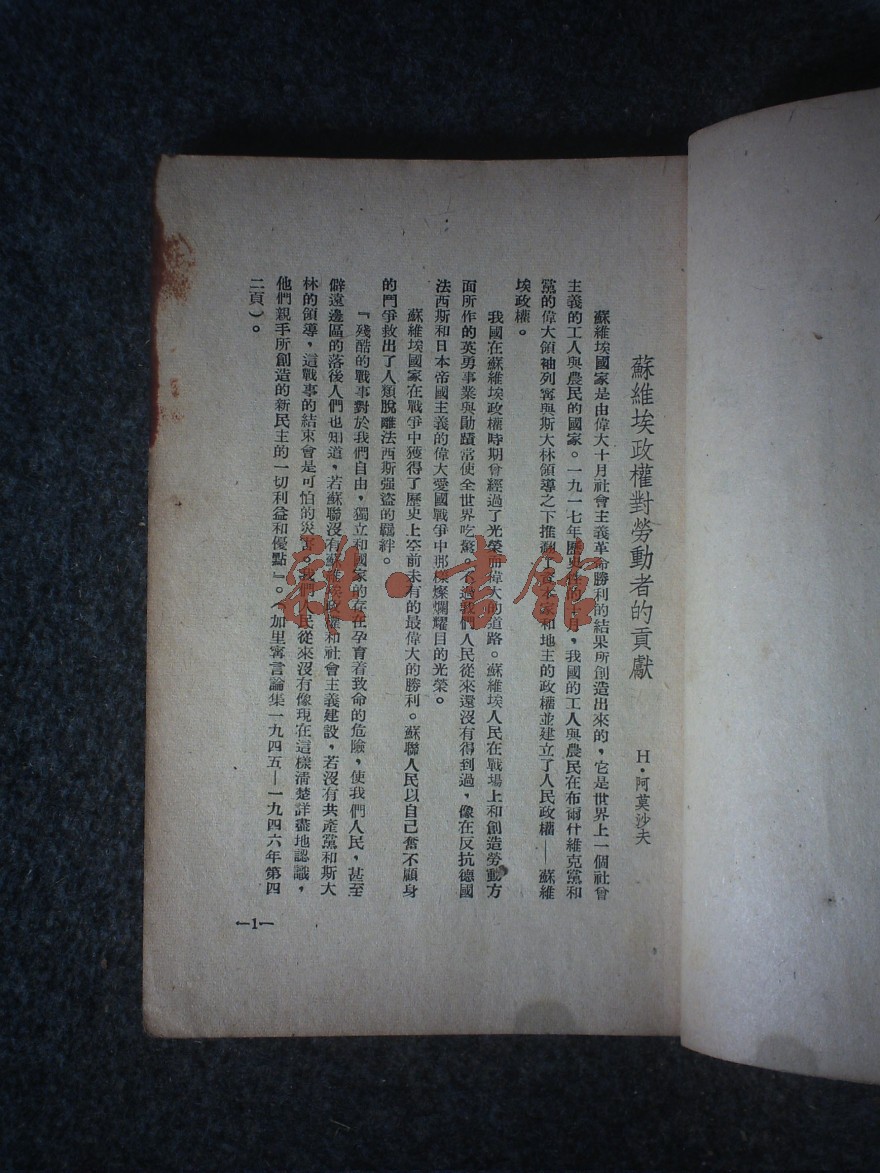 蘇維埃政權對勞動者的貢獻
H·阿莫沙夫
蘇維埃國家是由偉大十月社會主義革命勝利的結果所創造出來的，它是世界上一個社會
主義的工人與農民的國家。一九一七年歷史性的十月，我國的工人與農民在布爾什維克黨和
黨的偉大領袖列寧與斯大林領導之下推翻了資本家和地主的政權並建立了人民政權——蘇維
埃政權。
我國在蘇維埃政權時期曾經過了光榮而偉大的道路。蘇維埃人民在戰場上和創造勞動方
面所作的英勇事業與勛蹟常使全世界吃驚。不過我們人民從來還沒有得到過，像在反抗德國
法西斯和日本帝國主義的偉大愛國戰爭中那樣燦爛耀目的光榮。
蘇維埃國家在戰爭中獲得了歷史上空前未有的最偉大的勝利。蘇聯人民以自己奮不顧身
的鬥爭救出了人類脫離法西斯强盜的羈絆。
『殘酷的戰事對於我們自由，獨立和國家的存在孕育着致命的危險，使我們人民，甚至
僻遠邊區的落後人們也知道，若蘇聯沒有蘇維埃政權和社會主義建設，若沒有共產黨和斯大
林的領導，這戰事的結束會是可怕的災害。我們人民從來沒有像現在這樣清楚詳盡地認識，
他們親手所創造的新民主的一切利益和優點』。（加里寗言論集一九四五—一九四六年第四
二頁）。
—1—
雜·書館